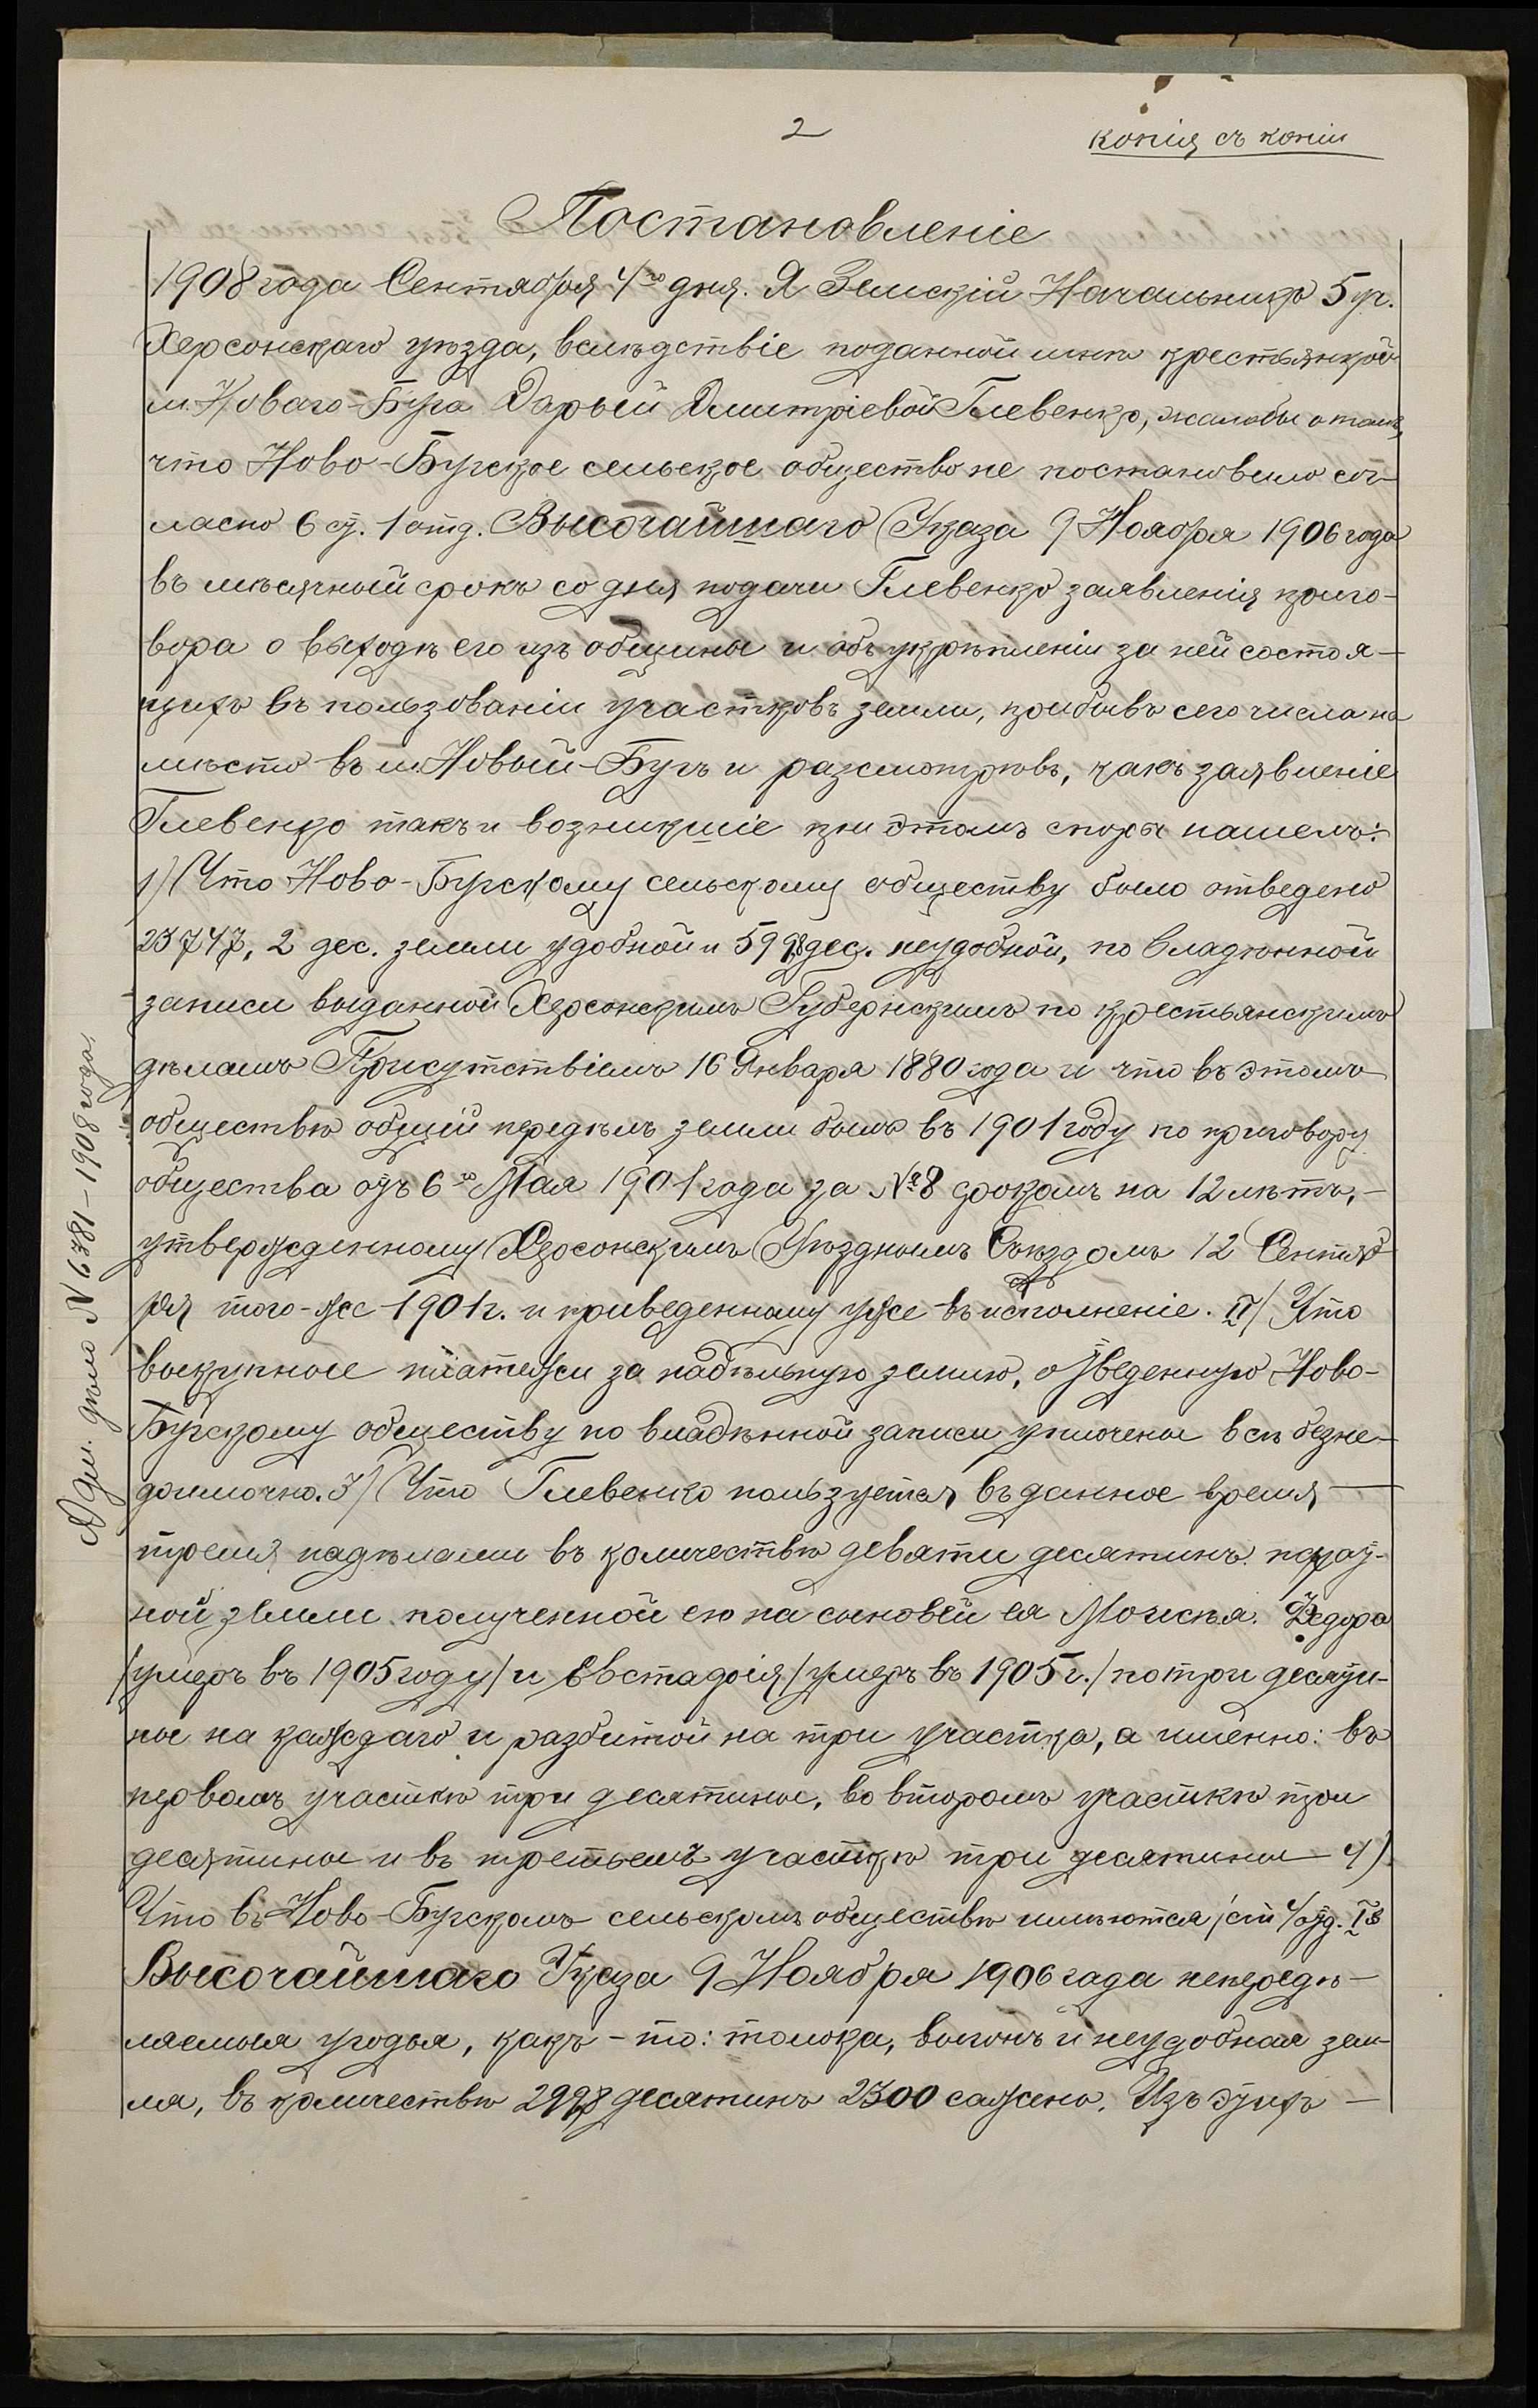 2
копія съ копіи
Постановленіе
1908 года Сентября 4го дня. Я Земскій Начальникъ 5 уч.
Херсонскаго уѣзда, вслѣдствіе поданной мнѣ крестьянкой
м. Новаго-Буга Дарьей Дмитріевой Глевенко, жалобы о томъ,
что Ново-Бугское сельское общество не постановило сог-
ласно 6 ст. 1 отд. Высочайшаго Указа 9 Ноября 1906 года
въ мѣсячный срокъ со дня подачи Глевенко заявленія приго-
вора о выходѣ его изъ общины и объ укрѣпленіи за ней состоя-
щихъ въ пользованіи участковъ земли, прибывъ сего числа на
мѣсто въ м. Новый-Бугъ и разсмотрѣвъ, какъ заявленіе
Глевенко такъ и возникшіе при этомъ споры нашелъ:
1) Что Ново-Бугскому сельскому обществу было отведено
23747, 2 дес. земли удобной и 599,8 дес. неудобной, по владѣнной
записи выданной Херсонскимъ Губернскимъ по крестьянскимъ
дѣламъ Присутствіемъ 16 Января 1880 года и что въ этомъ
обществѣ общій передѣлъ земли былъ въ 1901 году по приговору
общества отъ 6го Мая 1901 года за №8 срокомъ на 12 лѣтъ,
утвержденному Херсонскимъ Уѣзднымъ Съѣздомъ 12 Сентяб
ря того-же 1901 г. и приведенному уже въ исполненіе. II/ Что
выкупные платежи за надѣльную землю, отведенную Ново-
Бугскому обществу по владѣнной записи уплочены всѣ безне-
доимочно. 3) Что Глевенко пользуется въ данное время
тремя надѣлами въ количествѣ девяти десятинъ пахат-
ной земли полученной ею на сыновей ея Моисея. Федора
/умеръ въ 1905 году/ и Евстафія /умеръ въ 1905 г./ по три десяти-
ны на каждаго и разбитой на три участка, а именно: въ
первомъ участкѣ три десятины, во второмъ участкѣ три
десятины и въ третьемъ участкѣ три десятины 4)
Что въ Ново-Бугскомъ сельскомъ обществѣ имѣются /ст 4 отд. Iв
Высочайшаго Указа 9 Ноября 1906 года непередѣ-
ляемыя угодья, какъ-то: толока, выгонъ и неудобная зем-
ля, въ количествѣ 2998 десятинъ 2300 сажень. Изъ этихъ
Адм. дѣло N 6781-1908 года.